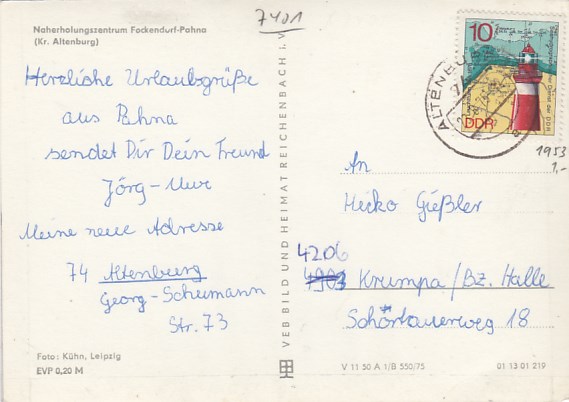 7401
Naherholungszentrum Fockendorf-Pahna
(Kr. Altenburg)
Herzliche Urlaubsgrüße
aus Pahna
sendet Dir Dein Freund
Jörg-Uwe
Meine neue Adresse
74 Altenburg
Georg-Schumann
Str. 73
Foto: Kühn, Leipzig
EVP 0,20 M
VEB BILD UND HEIMAT REICHENBACH i. V.
10
DDR
ALTENBU
1953
1,-
An
Heiko Gießler
4206
Krumpa/Bz. Halle
Schörtauerweg 18
V 11 50 A 1/B 550/75
01 13 01 219